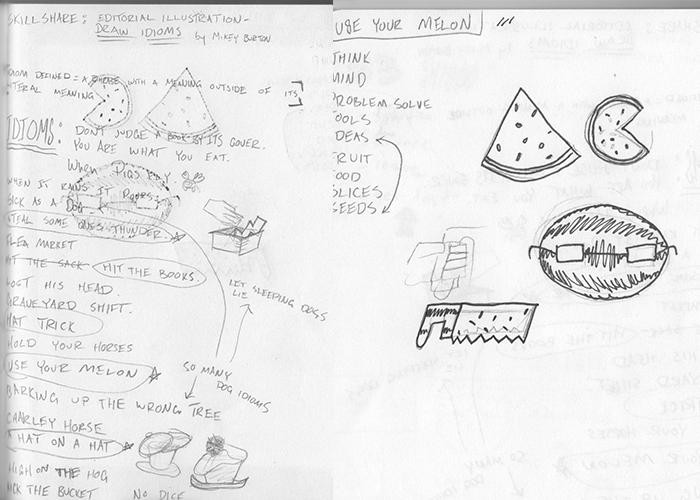 SKILLSHARE: EDITORIAL ILLUSTRATION-
DRAW IDIOMS by MIKEY BURTON
IDIOM DEFINED = A PHRASE WITH A MEANING OUTSIDE OF ITS
LITERAL MEANING
IDIOMS:
DON'T JUDGE A BOOK BY ITS COVER.
YOU ARE WHAT YOU EAT.
When PIGS FLY
WHEN IT RAINS IT POORS.
SICK AS A DOG
STEAL SOME ONES THUNDER.
FLEA MARKET
HIT THE SACK HIT THE BOOKS.
LOST HIS HEAD.
GRAVEYARD SHIFT.
HAT TRICK
HOLD YOUR HORSES
USE YOUR MELON
BARKING UP THE WRONG TREE
CHARLEY HORSE
A HAT ON A HAT
HIGH ON THE HOG
KICK THE BUCKET
NO DICE
LET SLEEPING DOGS
LIE
SO MANY
DOG IDIOMS
USE YOUR MELON
THINK
MIND
PROBLEM SOLVE
TOOLS
IDEAS
FRUIT
FOOD
SLICES
SEEDS